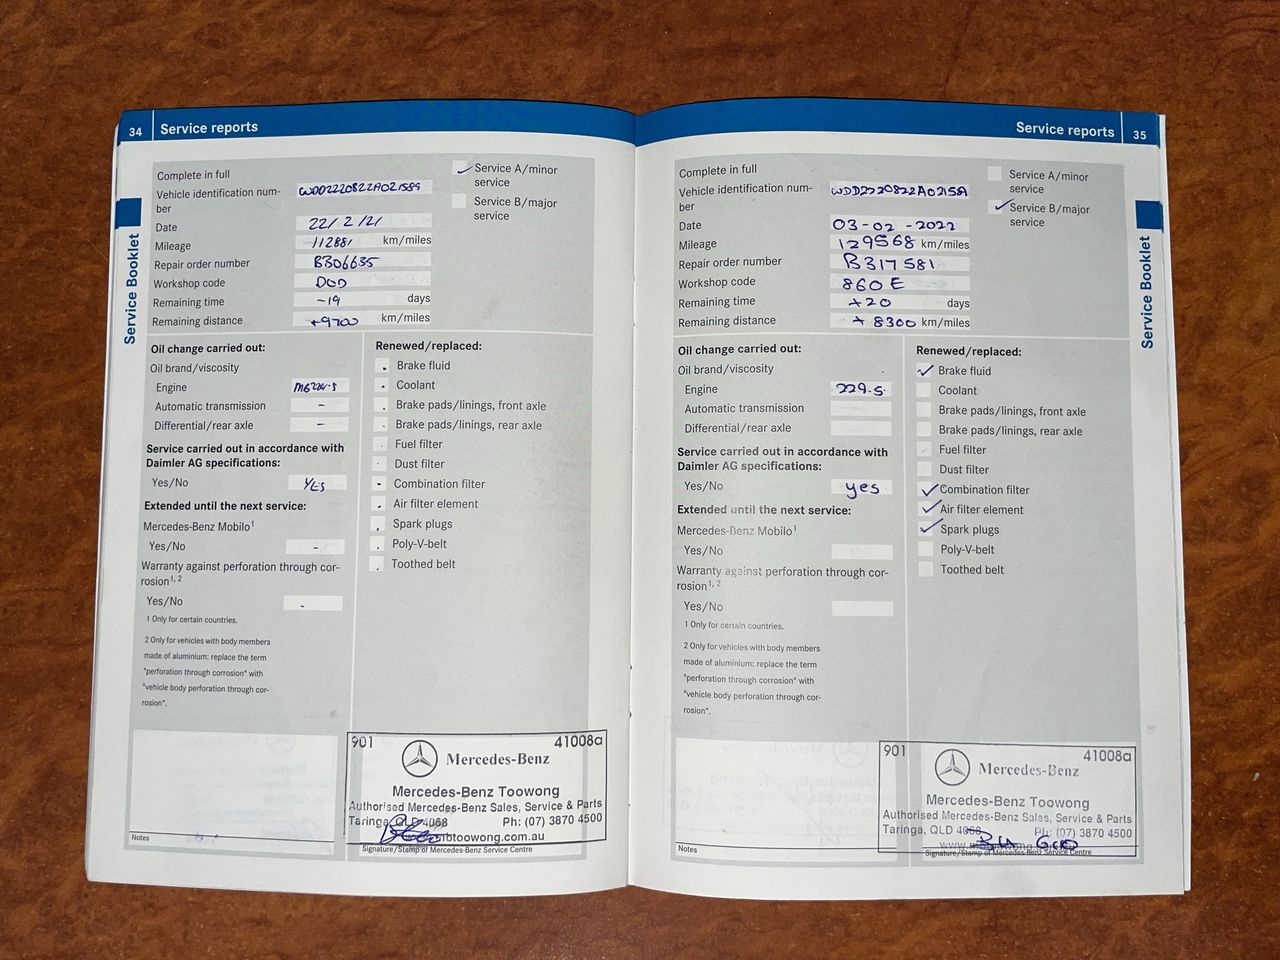 34 Service reports
Complete in full
Service A/minor
service
Vehicle identification num-
ber
WDD2220822A021589
Service B/major
service
Date 22/2/21
Mileage 112881 km/miles
Repair order number B306635
Workshop code DOD
Remaining time -19 days
Remaining distance +9700 km/miles
Oil change carried out:
Oil brand/viscosity
Engine
Automatic transmission -
Differential/rear axle -
Service carried out in accordance with
Daimler AG specifications:
Yes/No YES
Extended until the next service:
Mercedes-Benz Mobilo1
Yes/No -
Warranty against perforation through cor-
rosion1, 2
Yes/No
1 Only for certain countries.
2 Only for vehicles with body members
made of aluminium: replace the term
"perforation through corrosion" with
"vehicle body perforation through cor-
rosion".
Renewed/replaced:
Brake fluid
Coolant
Brake pads/linings, front axle
Brake pads/linings, rear axle
Fuel filter
Dust filter
Combination filter
Air filter element
Spark plugs
Poly-V-belt
Toothed belt
901 41008a
Mercedes-Benz
Mercedes-Benz Toowong
Authorised Mercedes-Benz Sales, Service & Parts
Taringa, QLD 4068 Ph: (07) 3870 4500
Notes
Signature/Stamp of Mercedes-Benz Service Centre
Service Booklet
Service reports 35
Complete in full
Service A/minor
service
Vehicle identification num-
ber
Service B/major
service
Date 03-02-2022
Mileage 129568 km/miles
Repair order number B317581
Workshop code 860E
Remaining time +20 days
Remaining distance +8300 km/miles
Oil change carried out:
Oil brand/viscosity
Engine 229.5.
Automatic transmission
Differential/rear axle
Service carried out in accordance with
Daimler AG specifications:
Yes/No yes
Extended until the next service:
Mercedes-Benz Mobilo1
Yes/No
Warranty against perforation through cor-
rosion1, 2
Yes/No
1 Only for certain countries.
2 Only for vehicles with body members
made of aluminium: replace the term
"perforation through corrosion" with
"vehicle body perforation through cor-
rosion".
Renewed/replaced:
Brake fluid
Coolant
Brake pads/linings, front axle
Brake pads/linings, rear axle
Fuel filter
Dust filter
Combination filter
Air filter element
Spark plugs
Poly-V-belt
Toothed belt
901 41008a
Mercedes-Benz
Mercedes-Benz Toowong
Authorised Mercedes-Benz Sales, Service & Parts
Taringa, QLD 4068 Ph: (07) 3870 4500
Notes
Signature/Stamp of Mercedes-Benz Service Centre
Service Booklet